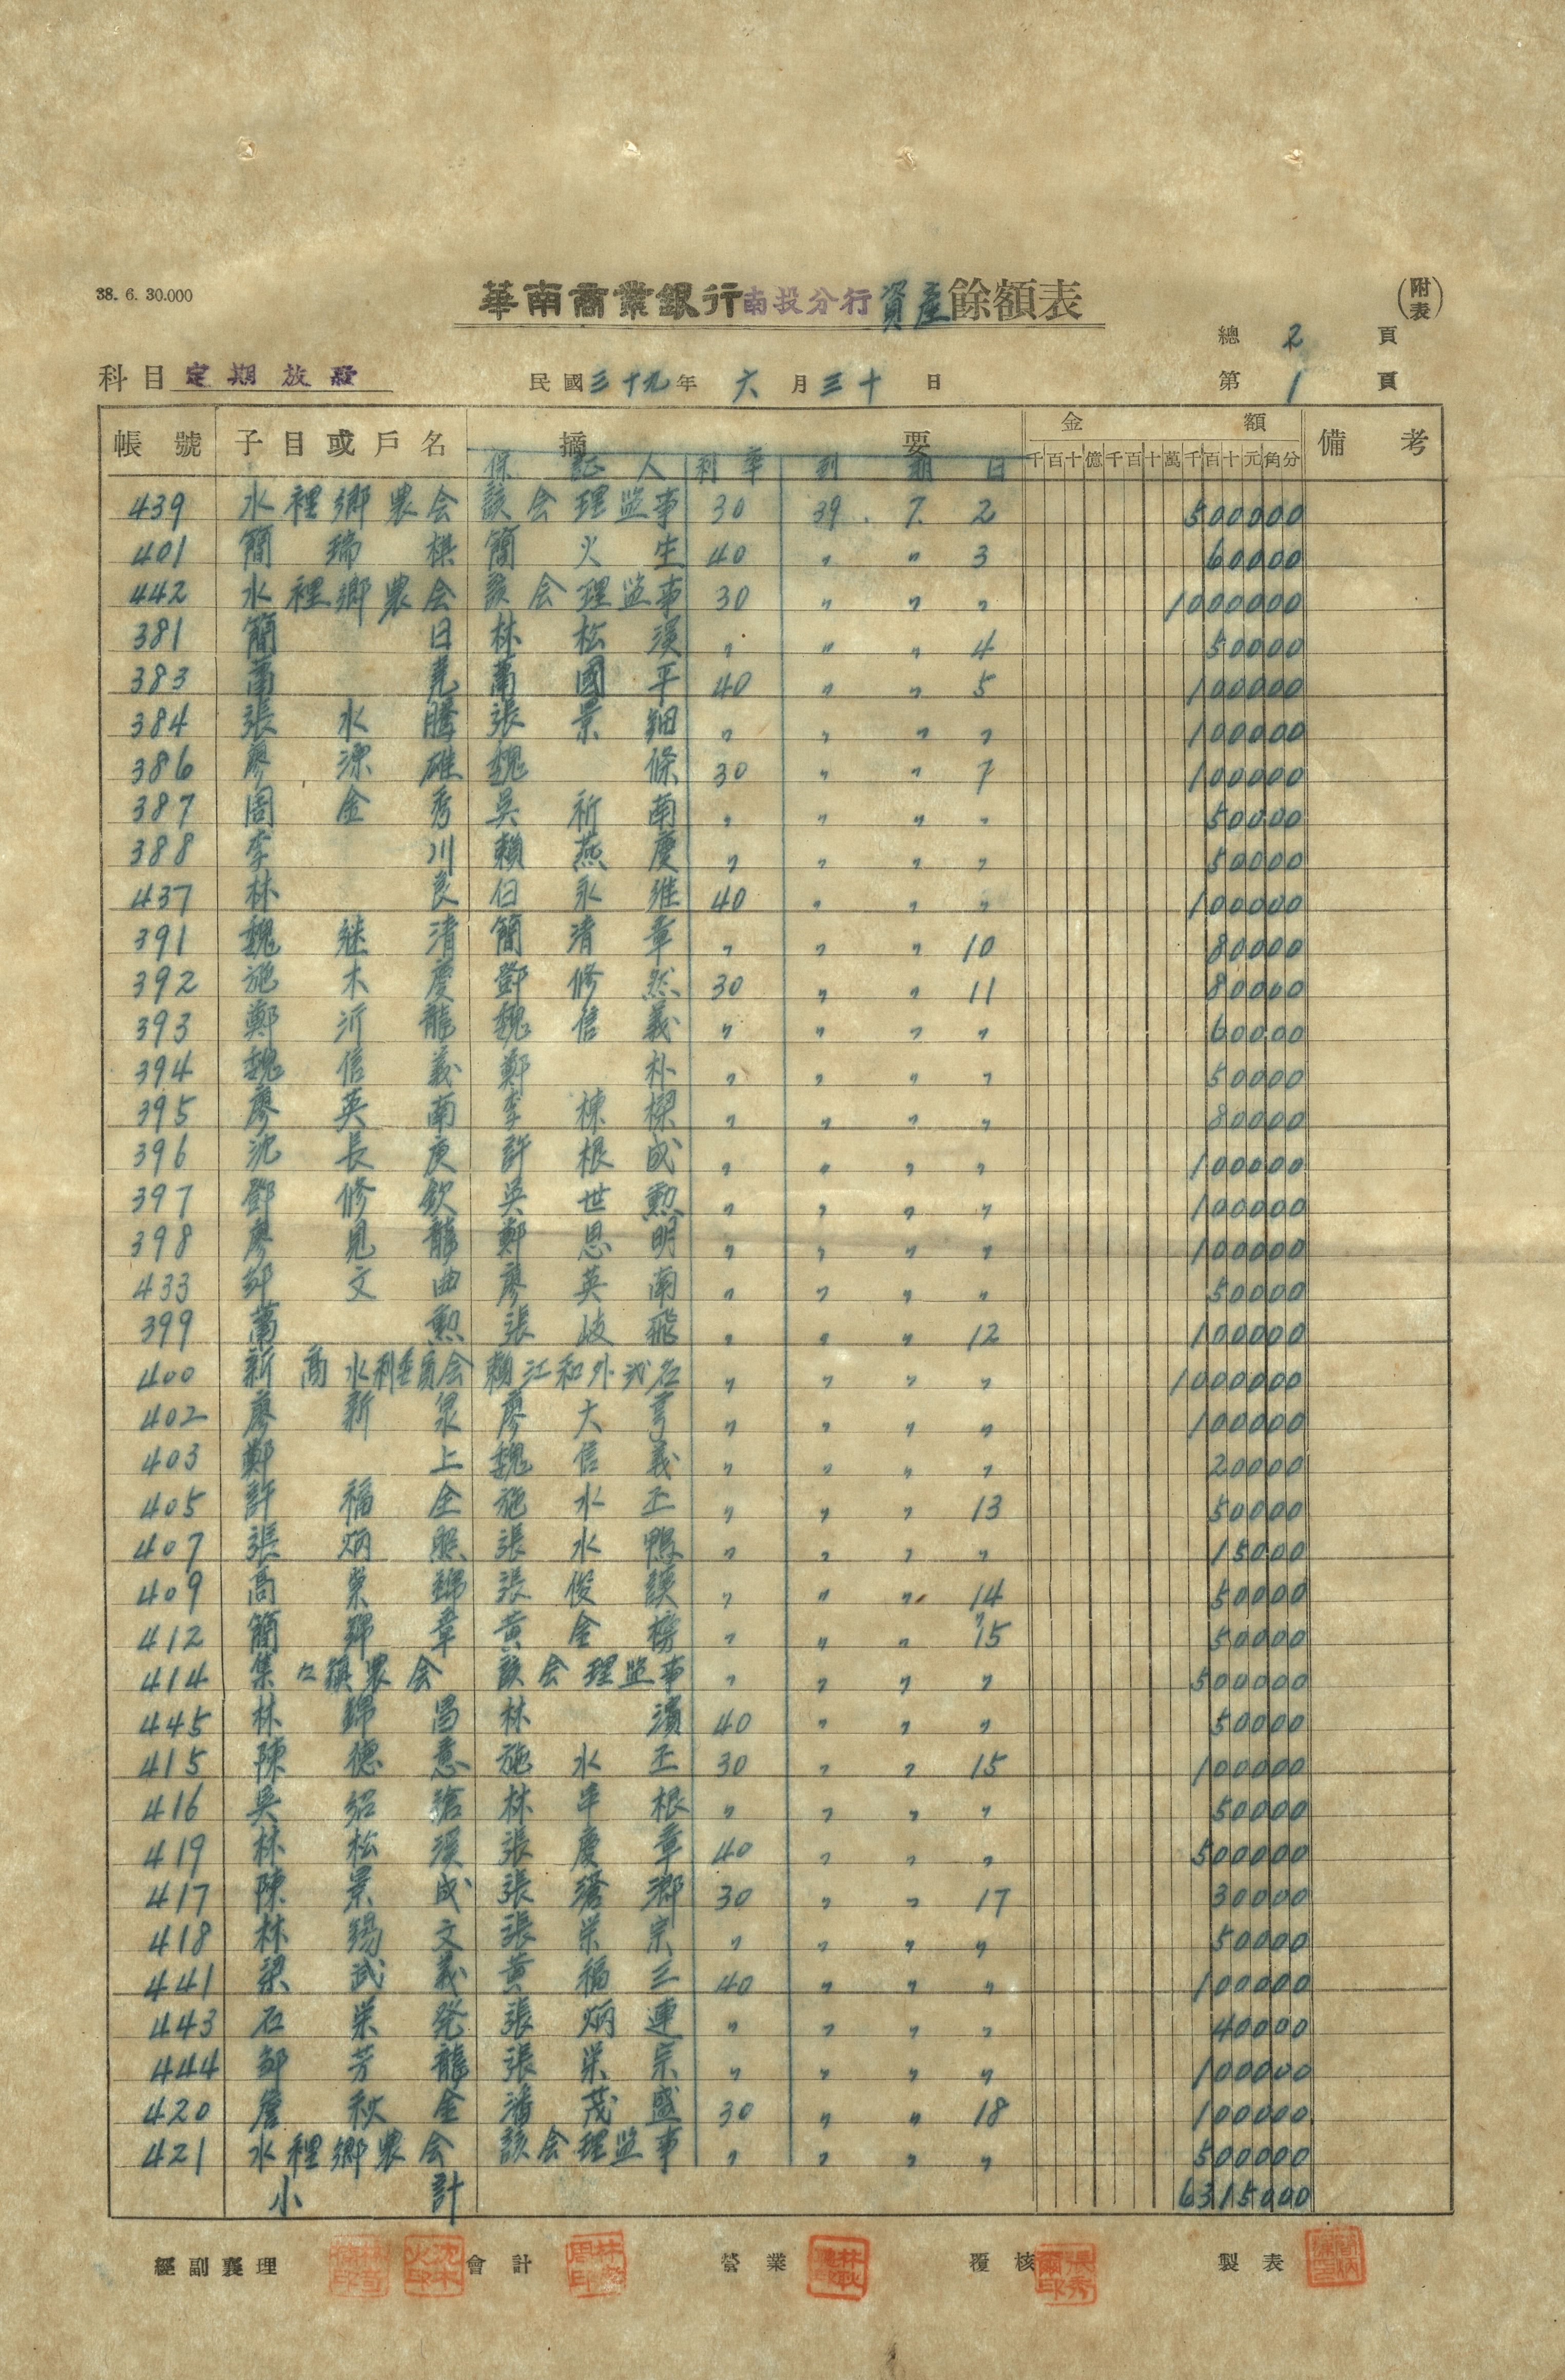 38. 6. 30.000
華南商業銀行南投分行資產餘額表
(附表)
總 2 頁
科目 定期放款 民國三十九年 六月三十日 第 1 頁
帳號 子目或戶名 摘要 金額 備考
保証人 利率 到期日 千百十億千百十萬千百十元角分
439 水裡鄉農会 該会理监事 30 39. 7. 2 500000
401 簡瑞棋 簡火生 40 〃 〃 3 60000
442 水裡鄉農会 該会理监事 30 〃 〃 〃 1000000
381 簡日 林松溪 〃 〃 〃 4 50000
383 萬堯 萬國平 40 〃 〃 5 100000
384 張水騰 張景 〃 〃 〃 〃 100000
386 廖漂碓 魏條 30 〃 〃 7 100000
387 周金秀 吳祈南 〃 〃 〃 〃 50000
388 李川 賴燕慶 〃 〃 〃 〃 50000
437 林良 白永維 40 〃 〃 〃 100000
391 魏継清 簡清章 〃 〃 〃 10 80000
392 施木慶 鄧修然 30 〃 〃 11 80000
393 鄭沂龍 魏信義 〃 〃 〃 〃 60000
394 魏信義 鄭朴 〃 〃 〃 〃 50000
395 廖英南 李棟樑 〃 〃 〃 〃 80000
396 沈長庚 許根成 〃 〃 〃 〃 100000
397 鄧修欽 吳世勲 〃 〃 〃 〃 100000
398 廖見龍 鄭恩明 〃 〃 〃 〃 100000
433 邹文曲 廖英南 〃 〃 〃 〃 50000
399 萬勲 張岐飛 〃 〃 〃 12 100000
400 新高水利委員会 賴江和外弍名 〃 〃 〃 〃 1000000
402 廖新泉 廖大亨 〃 〃 〃 〃 100000
403 鄭上 魏信義 〃 〃 〃 〃 20000
405 許福全 施水丕 〃 〃 〃 13 50000
407 張炳照 張水鴨 〃 〃 〃 〃 15000
409 高崇錦 張俊謨 〃 〃 〃 14 50000
412 簡錦章 黄金榜 〃 〃 〃 15 50000
414 集々鎮農会 該会理监事 〃 〃 〃 〃 500000
445 林錦昌 林濱 40 〃 〃 〃 50000
415 陳德意 施水丕 30 〃 〃 15 100000
416 吳紹滄 林平根 〃 〃 〃 〃 50000
419 林松溪 張慶章 40 〃 〃 〃 500000
417 陳景成 張滄鄉 30 〃 〃 17 30000
418 林錫文 張栄宗 〃 〃 〃 〃 50000
441 梁武義 黄福三 40 〃 〃 〃 100000
443 石栄発 張炳連 〃 〃 〃 〃 40000
444 邹芳龍 張栄宗 〃 〃 〃 〃 100000
420 詹秋金 潘茂盛 30 〃 〃 18 100000
421 水裡鄉農会 該会理监事 〃 〃 〃 〃 500000
小計 6315000
經副襄理 會計 營業 覆核 製表